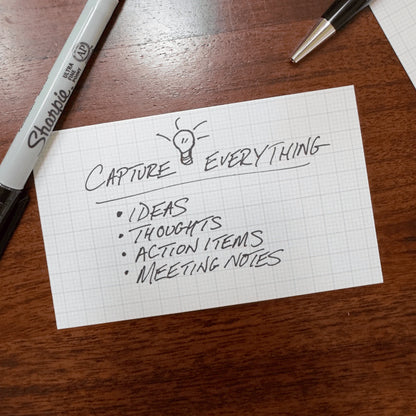 Sharpie
ULTRA
FINE
POINT
AP
CAPTURE EVERYTHING
• IDEAS
• THOUGHTS
• ACTION ITEMS
• MEETING NOTES